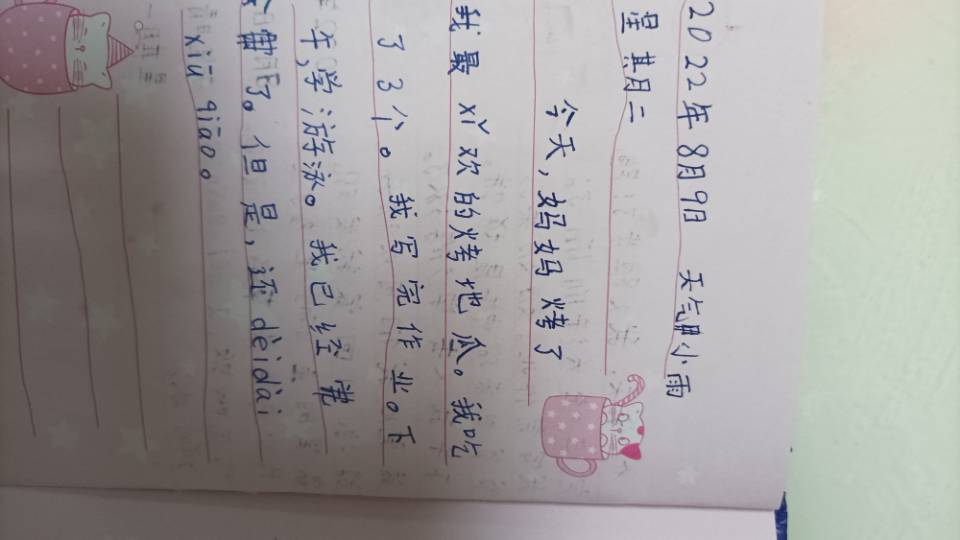 2022年8月9日 天气小雨
星期二
今天，妈妈烤了
我最xǐ欢的烤地瓜。我吃
了3个。我写完作业。下
午，学游泳。我已经
了。但是，还dèidài
xiū qiāo。